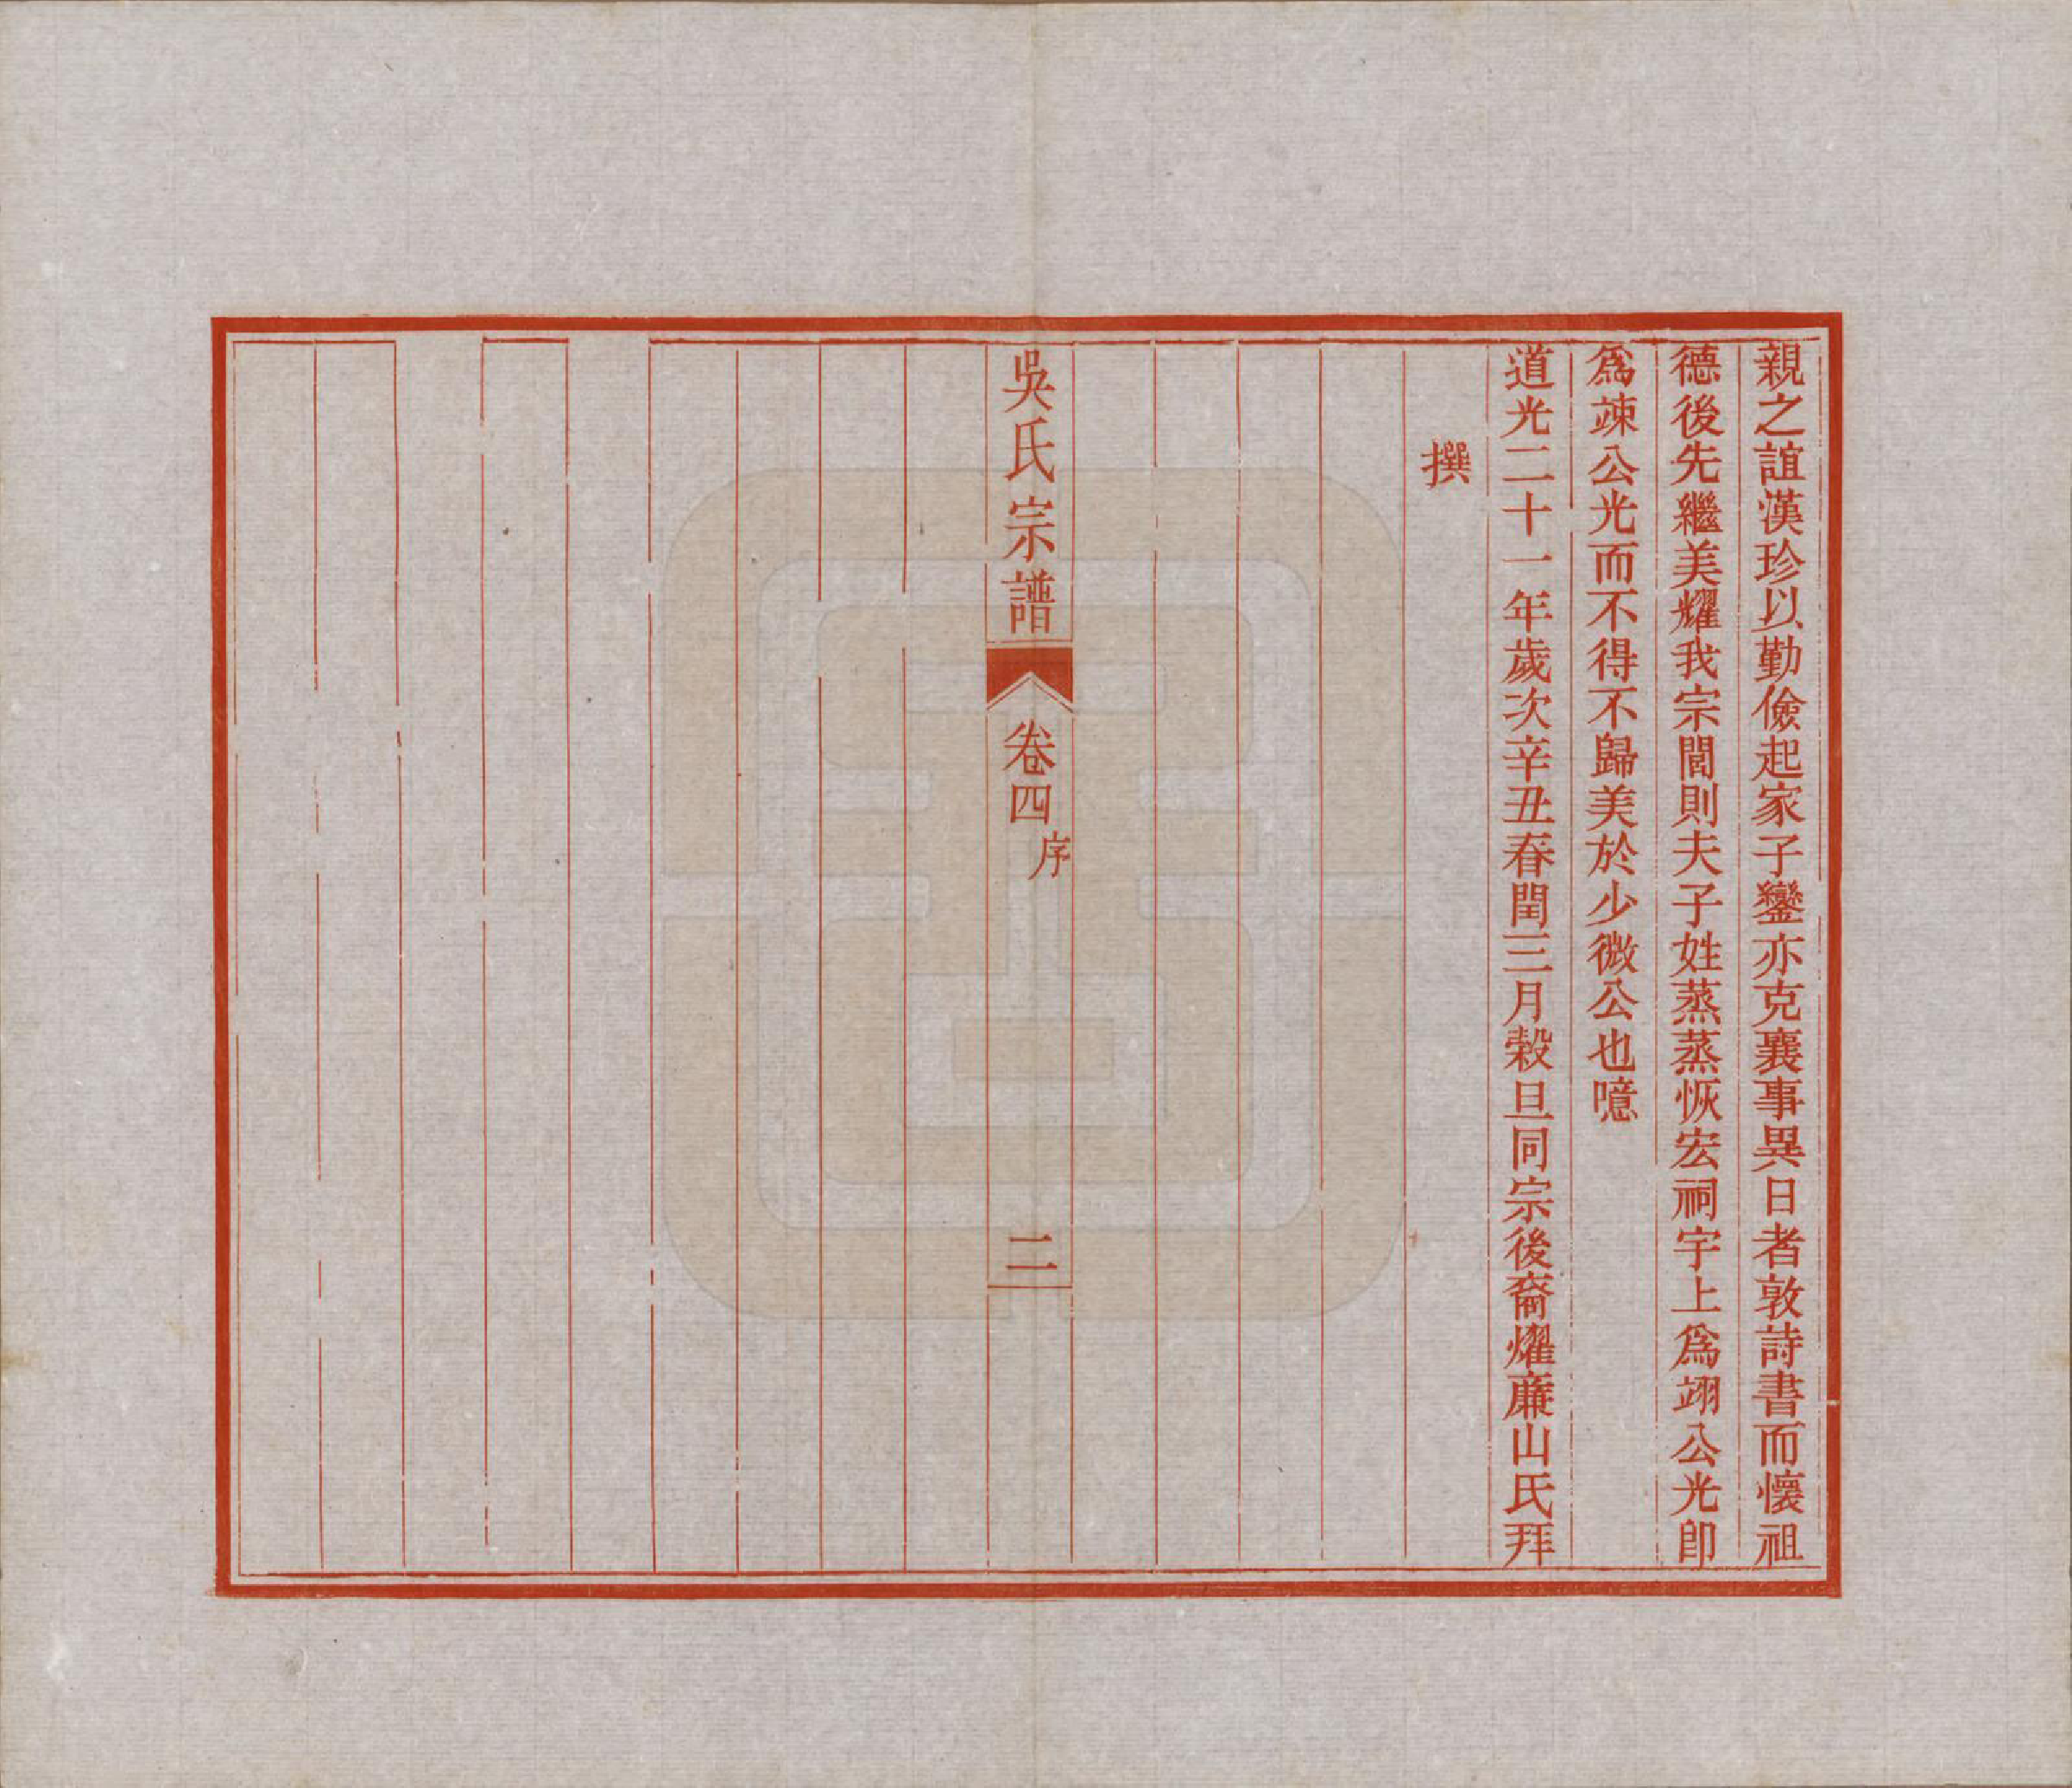 親之誼漢珍以勤儉起家子鑾亦克襄事異日者敦詩書而懷祖
德後先繼美耀我宗閭則夫子姓蒸蒸恢宏祠宇上為翊公光卽
為竦公光而不得不歸美於少微公也噫
道光二十一年歲次辛丑春閏三月穀旦同宗後裔燿廉山氏拜
撰
吳氏宗譜
卷四
序
二